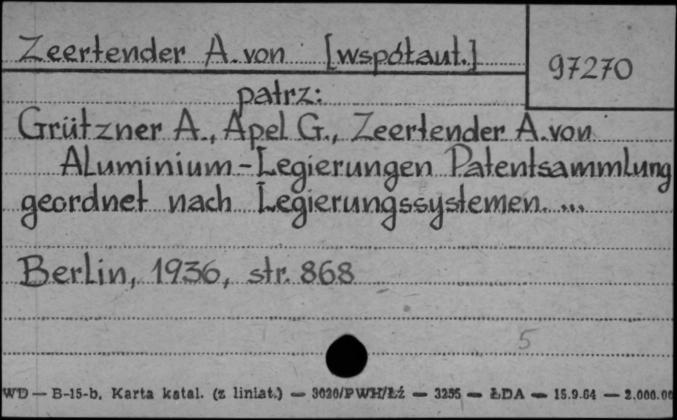 Zeertender A. von [współaut.]
97270
patrz:
Grützner A., Apel G., Zeertender A. von
Aluminium-Legierungen Patentsammlung
geordnet nach Legierungssystemen. ...
Berlin, 1936, str. 868
5
WD — B-15-b. Karta katal. (z liniat.) — 3020/PWH/Łź — 3255 — ŁDA — 15.9.64 — 2.000.00